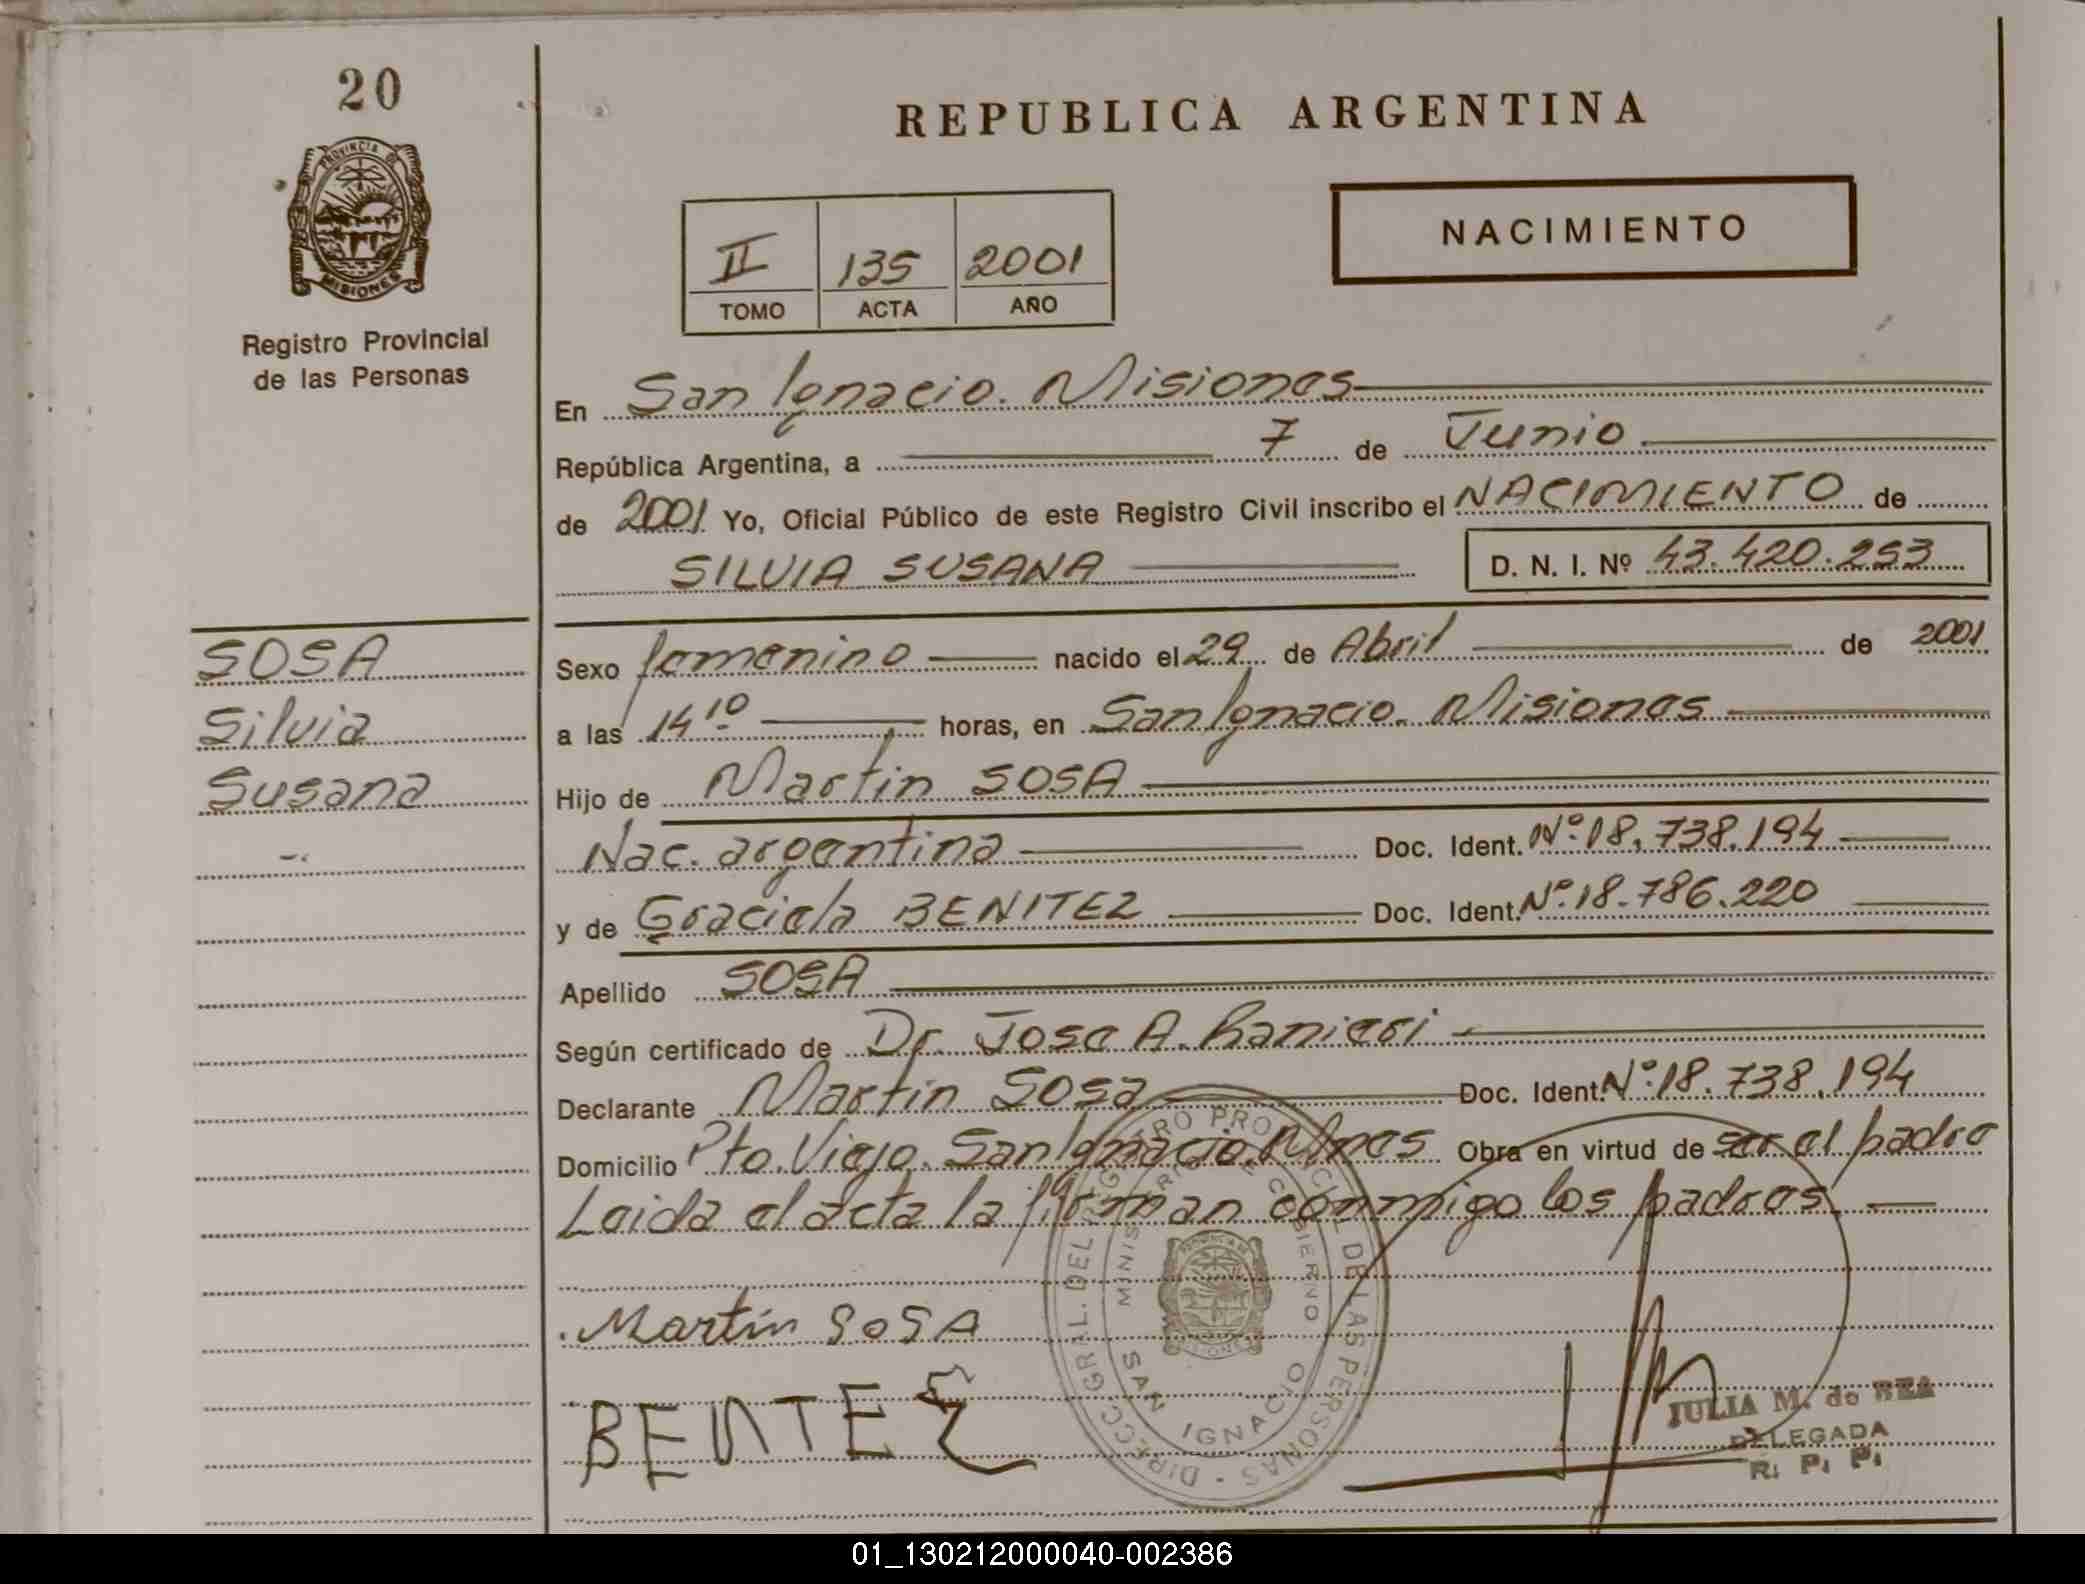 20
REPUBLICA ARGENTINA
PROVINCIA DE
MISIONES
NACIMIENTO
II 135 2001
TOMO ACTA AÑO
Registro Provincial
de las Personas
En San Ignacio. Misiones
República Argentina, a 7 de Junio
de 2001 Yo, Oficial Público de este Registro Civil inscribo el NACIMIENTO de
SILVIA SUSANA D. N. I. Nº 43.420.253
SOSA
Silvia
Susana
Sexo femenino nacido el 29 de Abril de 2001
a las 14 10 horas, en San Ignacio. Misiones
Hijo de Martin SOSA
Nac. argentina Doc. Ident. Nº 18.738.194
y de Graciela BENITEZ Doc. Ident. Nº 18.786.220
Apellido SOSA
Según certificado de Dr. Jose A. Ranieri
Declarante Martin Sosa Doc. Ident. Nº 18.738.194
Domicilio Pto. Viejo. San Ignacio. Mnes Obra en virtud de ser el padre
Leida el acta la firman conmigo los padres
Martin SOSA
BENTEZ
DIRECC. GRAL. DEL REGISTRO PROVINCIAL DE LAS PERSONAS
MINISTERIO DE GOBIERNO
PROVINCIA DE
MISIONES
SAN IGNACIO
JULIA M. de BEA
DELEGADA
R. P. P.
01_130212000040-002386